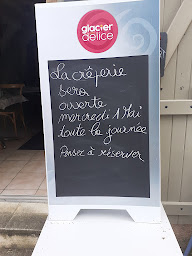 glacier
délice
La crêperie
sera
ouverte
mercredi 1 Mai
toute la journée
Pensez à réserver